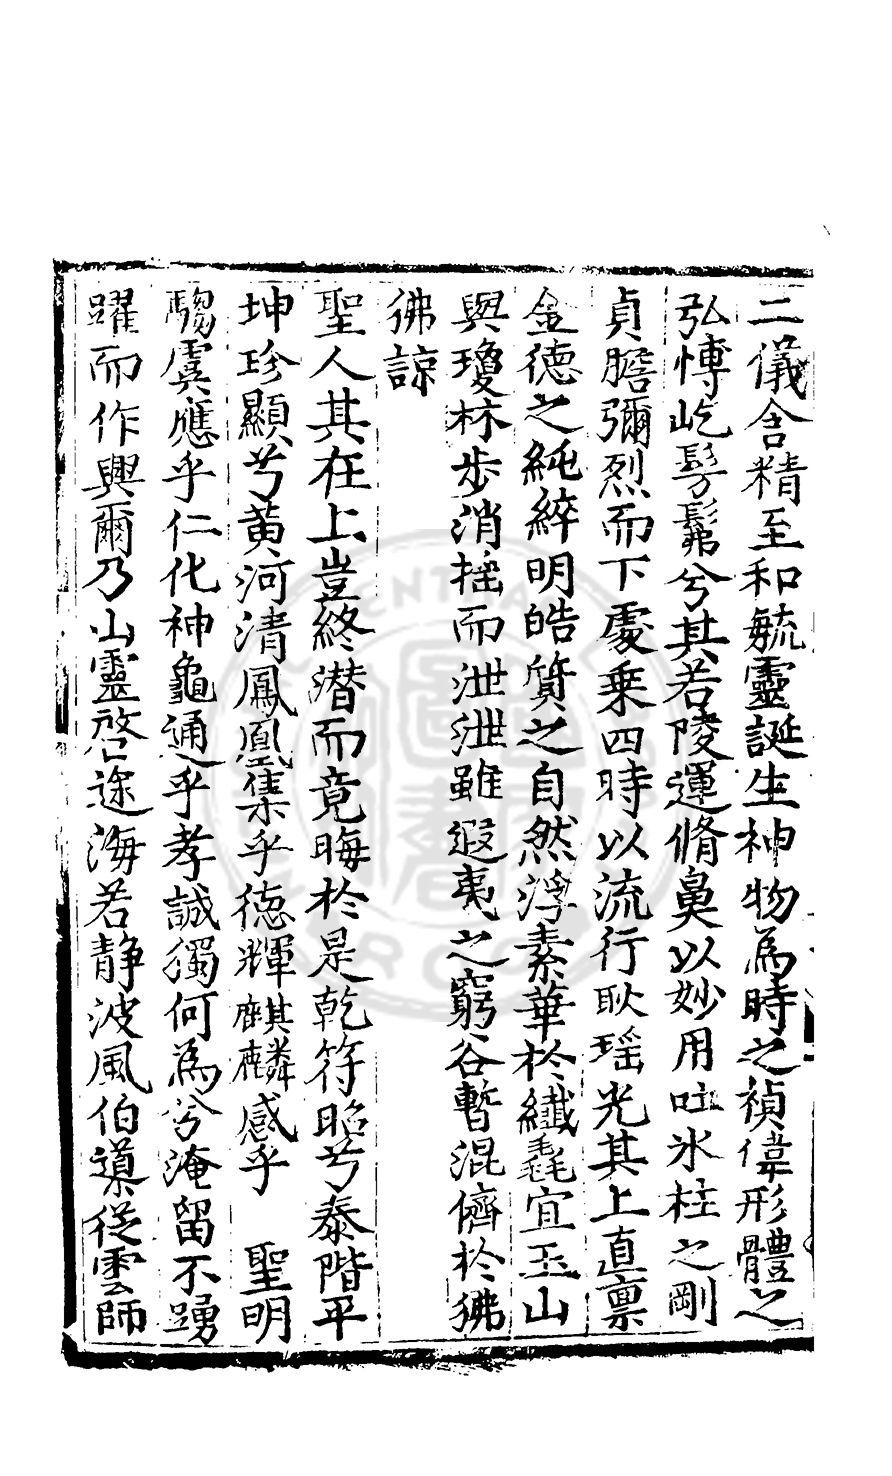 二儀含精至和毓靈誕生神物為時之禎偉形體之
弘博屹髣髴兮其若陵運脩鼻以妙用吐氷柱之剛
貞膽彌烈而下處乗四時以流行耿瑶光其上直禀
金德之純綷明皓質之自然浮素華於纖毳宜玉山
與瓊林步消揺而泄泄雖遐夷之窮谷暫混儕於狒
彿諒
聖人其在上豈終潜而竟晦於是乾符昭兮泰階平
坤珍顯兮黃河清鳳凰集乎德輝麒麟感乎 聖明
騶虞應乎仁化神龜通乎孝誠獨何為兮淹留不踴
躍而作興爾乃山靈啓途海若静波風伯導從雲師